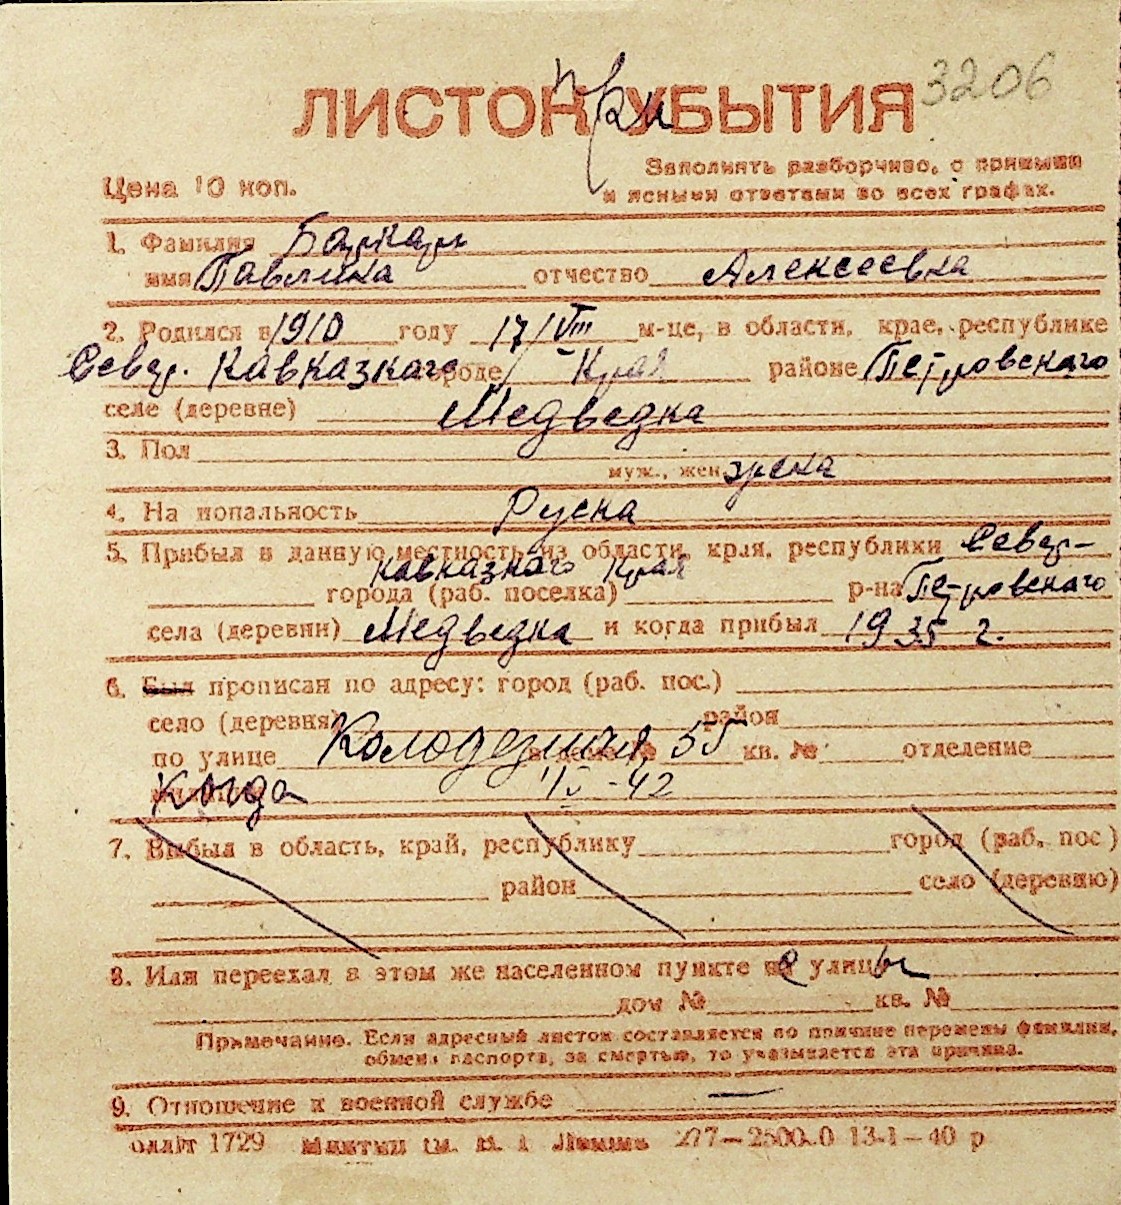 ЛИСТОК УБЫТИЯ при 3206
Заполнять разборчиво, с прямыми
Цена 10 коп. и ясными ответами во всех графах.
1. Фамилия
имя Павлина отчество Алексеевна
2. Родился в 1910 году 17/VIII м-це, в области, крае, республике
Север. Кавказкаго городе Края районе Петровскаго
селе (деревне) Медведка
3. Пол
муж., жен. женa
4. На иональность Руска
5. Прибыл в данную местность из области, края, республики Север-
кавказкаго Края
города (раб. поселка) р-на Петровскаго
села (деревни) Медведка и когда прибыл 1935 г.
6. Был прописан по адресу: город (раб. пос.)
село (деревня) район
по улице Колодезная, в доме № 55 кв. № отделение
Когда IV-42
7. Выбыл в область, край, республику город (раб. пос)
район село (деревню)
8. Или переехал в этом же населенном пункте с улицы
дом № кв. №
Примечание. Если адресный листок составляется по причине перемены фамилии,
обмена паспорта, за смертью, то указывается эта причина.
9. Отношение к военной службе —
1729 277—2500.0 13-1—40 р